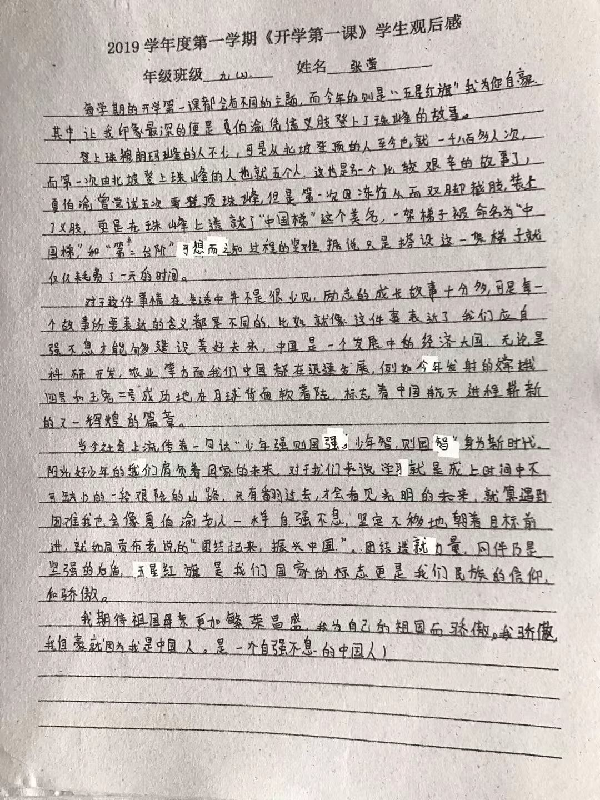 2019学年度第一学期《开学第一课》学生观后感
年级班级 九(4) 姓名 张萱
每学期的开学第一课都会有不同的主题,而今年的则是“五星红旗”我为你自豪
其中让我印象最深的便是夏伯渝凭借义肢登上了珠峰的故事。
登上珠穆朗玛峰的人不少,可是从北坡登顶的人至今也就一千八百多人次,
而第一次由北坡登上珠峰的人也就五个人,这也是另一个比较艰辛的故事了,
夏伯渝曾尝试五次要登顶珠峰,但是第一次因冻伤从而双脚截肢,装上
了义肢,更是在珠峰上造就了“中国梯”这个美名,一架梯子被命名为“中
国梯”和“第二台阶”可想而知过程的坚难,据说只是搭设这一架梯子就
仅仅耗费了一天的时间。
对于这件事情在生活中并不是很少见,励志的成长故事十分多,可是每一
个故事所要表达的含义都是不同的,比如就像这件事表达了我们应自
强不息才能够建设美好未来,中国是一个发展中的经济大国,无论是
科研开发,农业等方面我们中国都在迅速发展,例如今年发射的嫦娥
四号和玉兔二号成功地在月球背面软着陆,标志着中国航天进程崭新
的了一辉煌的篇章。
当今社会上流传着一句话“少年强则国强。少年智,则国智”身为新时代,
阳光好少年的我们肩负着国家的未来,对于我们来说学习就是成上时间中不
可缺少的一段艰险的山路,只有翻过去,才会看见光明的未来,就算遇到
困难我也会像夏伯渝老人一样自强不息,坚定不移地朝着目标前
进,就如同贡布老说的“团结起来,振兴中国”,团结造就力量,同伴乃是
坚强的后盾,五星红旗是我们国家的标志更是我们民族的信仰,
和骄傲。
我期待祖国母亲更加繁荣昌盛,我为自己的祖国而骄傲。我骄傲,
我自豪就因为我是中国人。是一个自强不息的中国人!